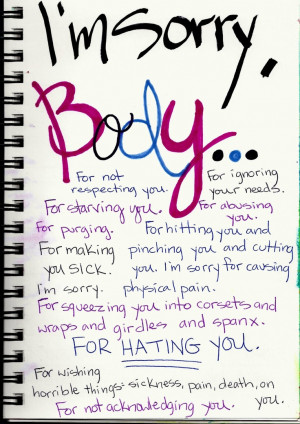 I'm sorry,
Body...
For not respecting you.
For ignoring your needs.
For starving you.
For abusing you.
For purging.
For hitting you and pinching you and cutting you. I'm sorry for causing physical pain.
For making you sick.
I'm sorry.
For squeezing you into corsets and
wraps and girdles and spanx.
FOR HATING YOU.
For wishing
horrible things: sickness, pain, death, on you.
For not acknowledging you.